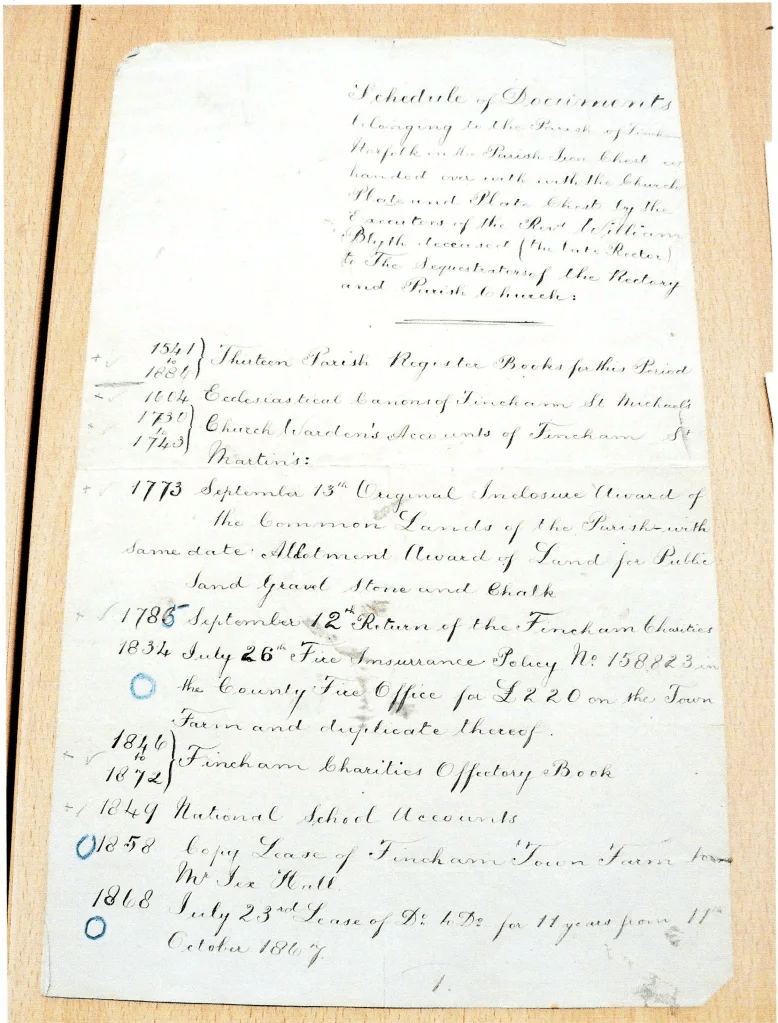 Schedule of Documents
belonging to the Parish of Fincham
Norfolk in the Parish Iron Chest as
handed over with with the Church
Plate and Plate Chest by the
Executors of the Revd William
Blyth deceased (the late Rector)
to The Sequestrators of the Rectory
and Parish Church:
1541
to
1884 } Thirteen Parish Register Books for this Period
1604 Ecclesiastical Canons of Fincham St Michael's
1730
to
1743 } Church Warden's Accounts of Fincham St
Martin's:
1773 September 13th Original Inclosure Award of
the Common Lands of the Parish - with
same date Allotment Award of Land for Public
Sand Gravel Stone and Chalk
1785 September 12th Return of the Fincham Charities
1834 July 26th Fire Insurrance Policy No. 158,823 in
the County Fire Office for £220 on the Town
Farm and duplicate thereof.
1846
to
1872 } Fincham Charities Offectory Book
1849 National School Accounts
1858 Copy Lease of Fincham Town Farm
Mr Hall
1868 July 23rd Lease of Do. to Do. for 11 years from 11th
October 1867.
1.